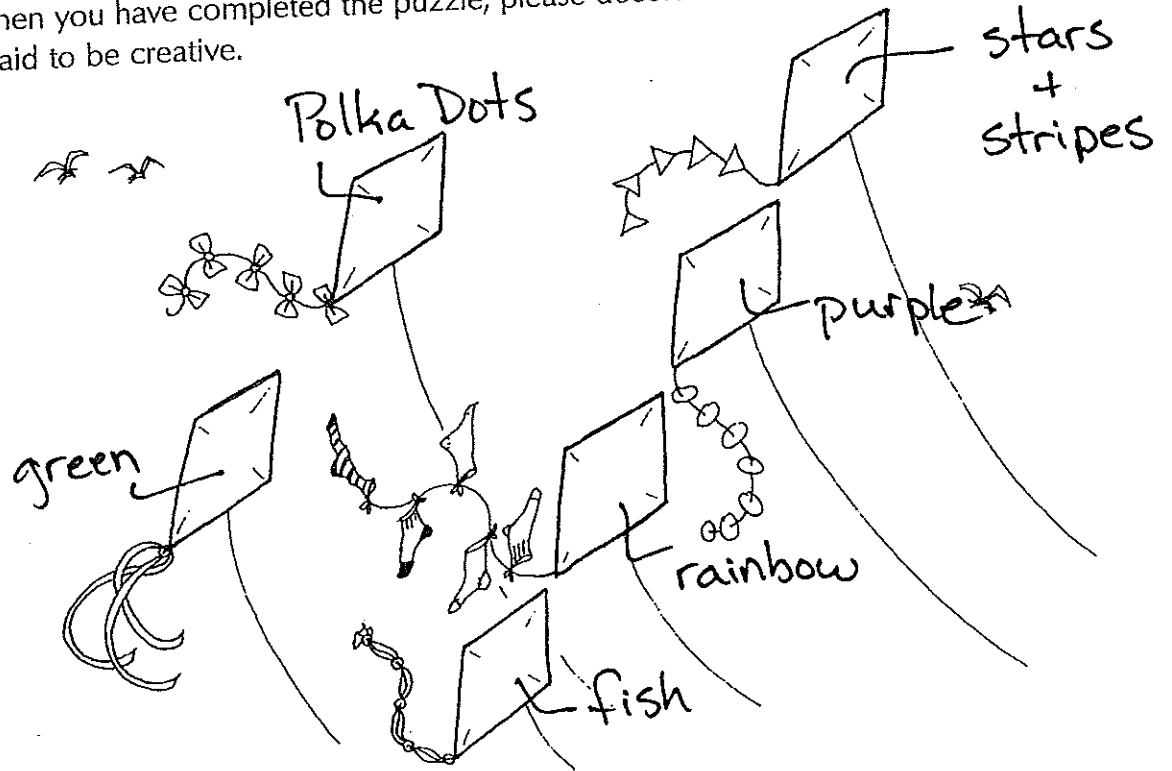 hen you have completed the puzzle, please
aid to be creative.
Polka Dots
stars
+
stripes
purple
green
rainbow
fish